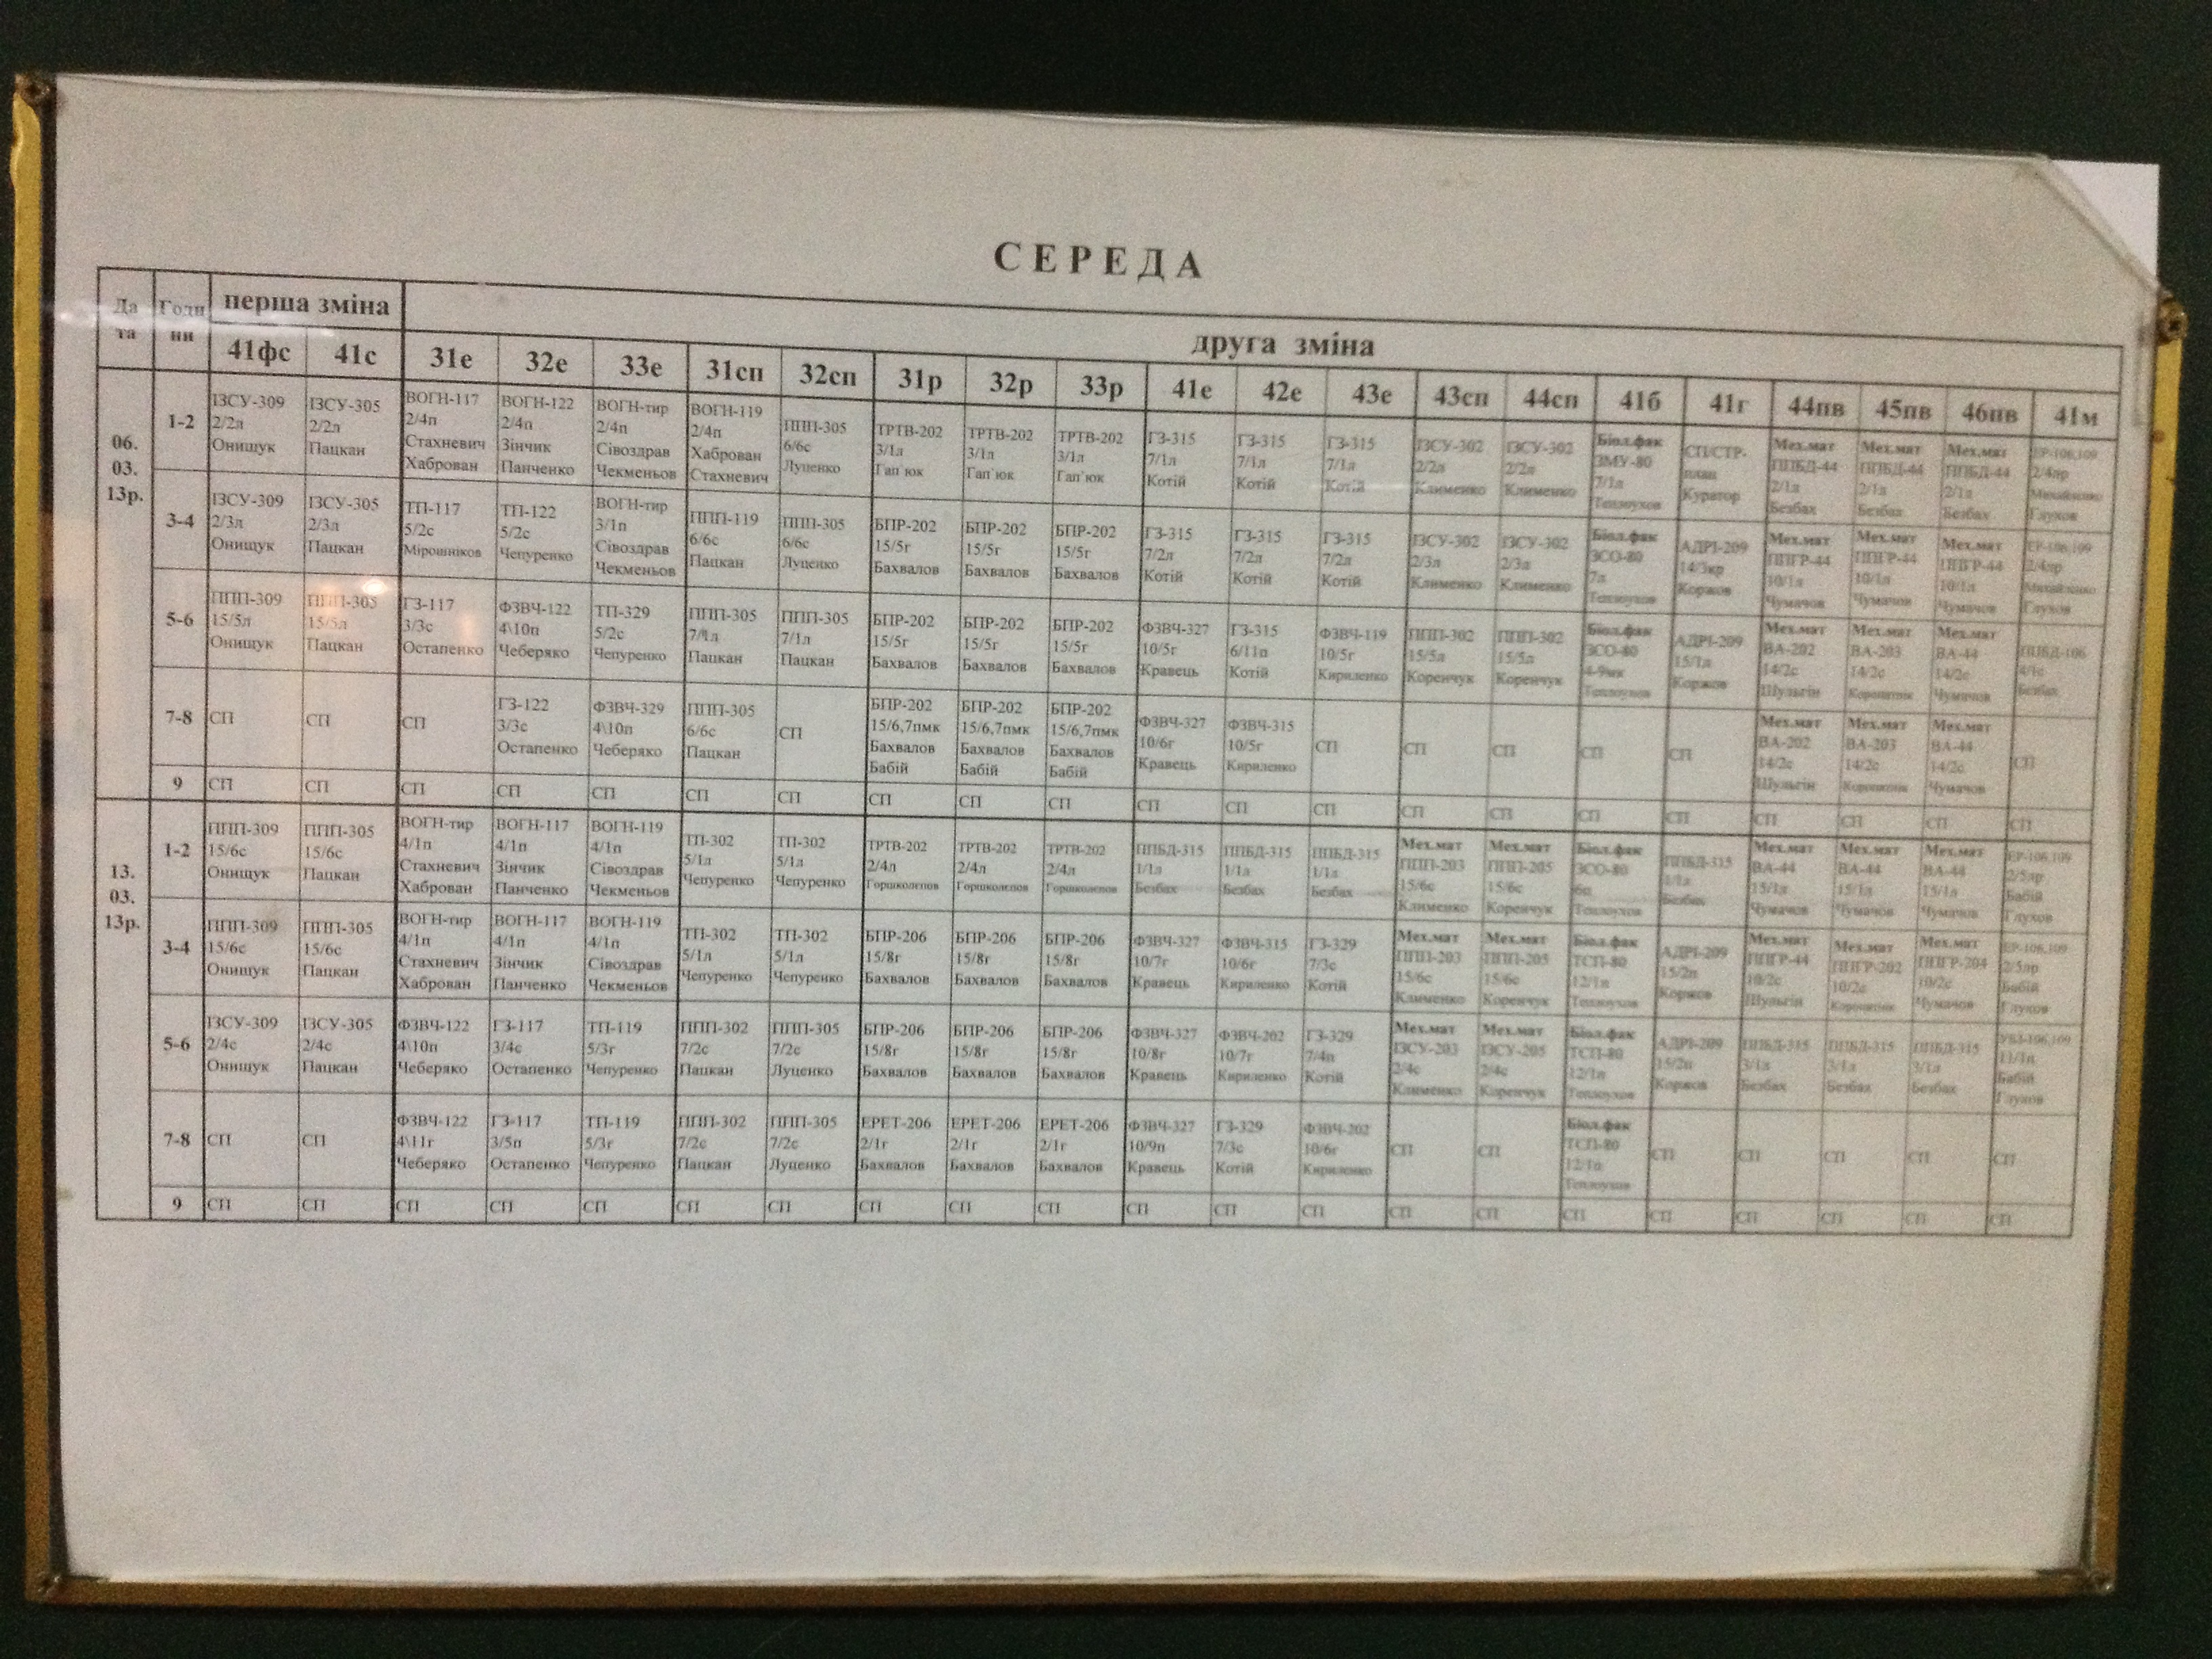 СЕРЕДА
Да та
Годи ни
перша зміна
друга зміна
41фс 41с 31е 32е 33е 31сп 32сп 31р 32р 33р 41е 42е 43е 43сп 44сп 41б 41г 44пв 45пв 46пв 41м
06. 03. 13р.
1-2
ІЗСУ-309 ІЗСУ-305 ВОГН-117 ВОГН-122 ВОГН-тир ВОГН-119 ППП-305 ТРТВ-202 ТРТВ-202 ТРТВ-202 ГЗ-315 ГЗ-315 ГЗ-315 ІЗСУ-302 ІЗСУ-302 Біол.фак СП/СТР- Мех.мат Мех.мат Мех.мат
2/2л 2/2л 2/4п 2/4п 2/4п 2/4п 6/6с 3/1л 3/1л 3/1л 7/1л 7/1л 7/1л 2/2л 2/2л ЗМУ-80 план ППБД-44 ППБД-44 ППБД-44 2/4пр
Онищук Пацкан Стахневич Зінчик Сівоздрав Хаброван Луценко Гап`юк Гап`юк Гап`юк Котій Котій Котій Клименко Клименко 7/1л Куратор 2/1л 2/1л 2/1л
Хаброван Панченко Чекменьов Стахневич Безбах Безбах Безбах Глухов
3-4
ІЗСУ-309 ІЗСУ-305 ТП-117 ТП-122 ВОГН-тир ППП-119 ППП-305 БПР-202 БПР-202 БПР-202 ГЗ-315 ГЗ-315 ГЗ-315 ІЗСУ-302 ІЗСУ-302 Біол.фак АДРІ-209 Мех.мат Мех.мат Мех.мат
2/3л 2/3л 5/2с 5/2с 3/1п 6/6с 6/6с 15/5г 15/5г 15/5г 7/2л 7/2л 7/2л 2/3л 2/3л ЗСО-80 14/3кр ППГР-44 ППГР-44 ППГР-44 2/4пр
Онищук Пацкан Мірошніков Чепуренко Сівоздрав Пацкан Луценко Бахвалов Бахвалов Бахвалов Котій Котій Котій Клименко Клименко 7л Коржов 10/1л 10/1л 10/1л
Чекменьов Чумачов Чумачов Чумачов Глухов
5-6
ППП-309 ППП-305 ГЗ-117 ФЗВЧ-122 ТП-329 ППП-305 ППП-305 БПР-202 БПР-202 БПР-202 ФЗВЧ-327 ГЗ-315 ФЗВЧ-119 ППП-302 ППП-302 Біол.фак АДРІ-209 Мех.мат Мех.мат Мех.мат ППБД-106
15/5л 15/5л 3/3с 4\10п 5/2с 7/1л 7/1л 15/5г 15/5г 15/5г 10/5г 6/11п 10/5г 15/5л 15/5л ЗСО-80 15/1л ВА-202 ВА-203 ВА-44
Онищук Пацкан Остапенко Чеберяко Чепуренко Пацкан Пацкан Бахвалов Бахвалов Бахвалов Кравець Котій Кириленко Коренчук Коренчук Коржов 14/2с 14/2с 14/2с Безбах
Шульгін Чумачов
7-8
СП СП СП ГЗ-122 ФЗВЧ-329 ППП-305 СП БПР-202 БПР-202 БПР-202 ФЗВЧ-327 ФЗВЧ-315 СП СП СП СП СП Мех.мат Мех.мат Мех.мат СП
3/3с 4\10п 6/6с 15/6,7пмк 15/6,7пмк 15/6,7пмк 10/6г 10/5г ВА-202 ВА-203 ВА-44
Остапенко Чеберяко Пацкан Бахвалов Бахвалов Бахвалов Кравець Кириленко 14/2с 14/2с 14/2с
Бабій Бабій Бабій Шульгін Чумачов
9 СП СП СП СП СП СП СП СП СП СП СП СП СП СП СП СП СП СП СП СП СП
13. 03. 13р.
1-2
ППП-309 ППП-305 ВОГН-тир ВОГН-117 ВОГН-119 ТП-302 ТП-302 ТРТВ-202 ТРТВ-202 ТРТВ-202 ППБД-315 ППБД-315 ППБД-315 Мех.мат Мех.мат Біол.фак ППБД-315 Мех.мат Мех.мат Мех.мат
15/6с 15/6с 4/1п 4/1п 4/1п 5/1л 5/1л 2/4л 2/4л 2/4л 1/1л 1/1л 1/1л ППП-203 ППП-205 ЗСО-80 1/1л ВА-44 ВА-44 ВА-44 2/5пр
Онищук Пацкан Стахневич Зінчик Сівоздрав Чепуренко Чепуренко Горшколепов Горшколепов Горшколепов Безбах Безбах Безбах 15/6с 15/6с Безбах 15/1л 15/1л 15/1л Бабій
Хаброван Панченко Чекменьов Клименко Коренчук Чумачов Чумачов Чумачов Глухов
3-4
ППП-309 ППП-305 ВОГН-тир ВОГН-117 ВОГН-119 ТП-302 ТП-302 БПР-206 БПР-206 БПР-206 ФЗВЧ-327 ФЗВЧ-315 ГЗ-329 Мех.мат Мех.мат Біол.фак АДРІ-209 Мех.мат Мех.мат Мех.мат
15/6с 15/6с 4/1п 4/1п 4/1п 5/1л 5/1л 15/8г 15/8г 15/8г 10/7г 10/6г 7/3с ППП-203 ППП-205 ТСП-80 15/2п ППГР-44 ППГР-202 ППГР-204 2/5пр
Онищук Пацкан Стахневич Зінчик Сівоздрав Чепуренко Чепуренко Бахвалов Бахвалов Бахвалов Кравець Кириленко Котій 15/6с 15/6с 12/1п Коржов 10/2с 10/2с 10/2с Бабій
Хаброван Панченко Чекменьов Клименко Коренчук Шульгін Чумачов Глухов
5-6
ІЗСУ-309 ІЗСУ-305 ФЗВЧ-122 ГЗ-117 ТП-119 ППП-302 ППП-305 БПР-206 БПР-206 БПР-206 ФЗВЧ-327 ФЗВЧ-202 ГЗ-329 Мех.мат Мех.мат Біол.фак АДРІ-209 ППБД-315 ППБД-315 ППБД-315
2/4с 2/4с 4\10п 3/4с 5/3г 7/2с 7/2с 15/8г 15/8г 15/8г 10/8г 10/7г 7/4п ІЗСУ-203 ІЗСУ-205 ТСП-80 15/2п 3/1л 3/1л 3/1л 11/1п
Онищук Пацкан Чеберяко Остапенко Чепуренко Пацкан Луценко Бахвалов Бахвалов Бахвалов Кравець Кириленко Котій 2/4с 2/4с 12/1п Коржов Безбах Безбах Безбах Бабій
Клименко Коренчук Глухов
7-8
СП СП ФЗВЧ-122 ГЗ-117 ТП-119 ППП-302 ППП-305 ЕРЕТ-206 ЕРЕТ-206 ЕРЕТ-206 ФЗВЧ-327 ГЗ-329 ФЗВЧ-202 СП СП Біол.фак СП СП СП СП СП
4\11г 3/5п 5/3г 7/2с 7/2с 2/1г 2/1г 2/1г 10/9п 7/3с 10/6г ТСП-80
Чеберяко Остапенко Чепуренко Пацкан Луценко Бахвалов Бахвалов Бахвалов Кравець Котій Кириленко 12/1п
9 СП СП СП СП СП СП СП СП СП СП СП СП СП СП СП СП СП СП СП СП СП